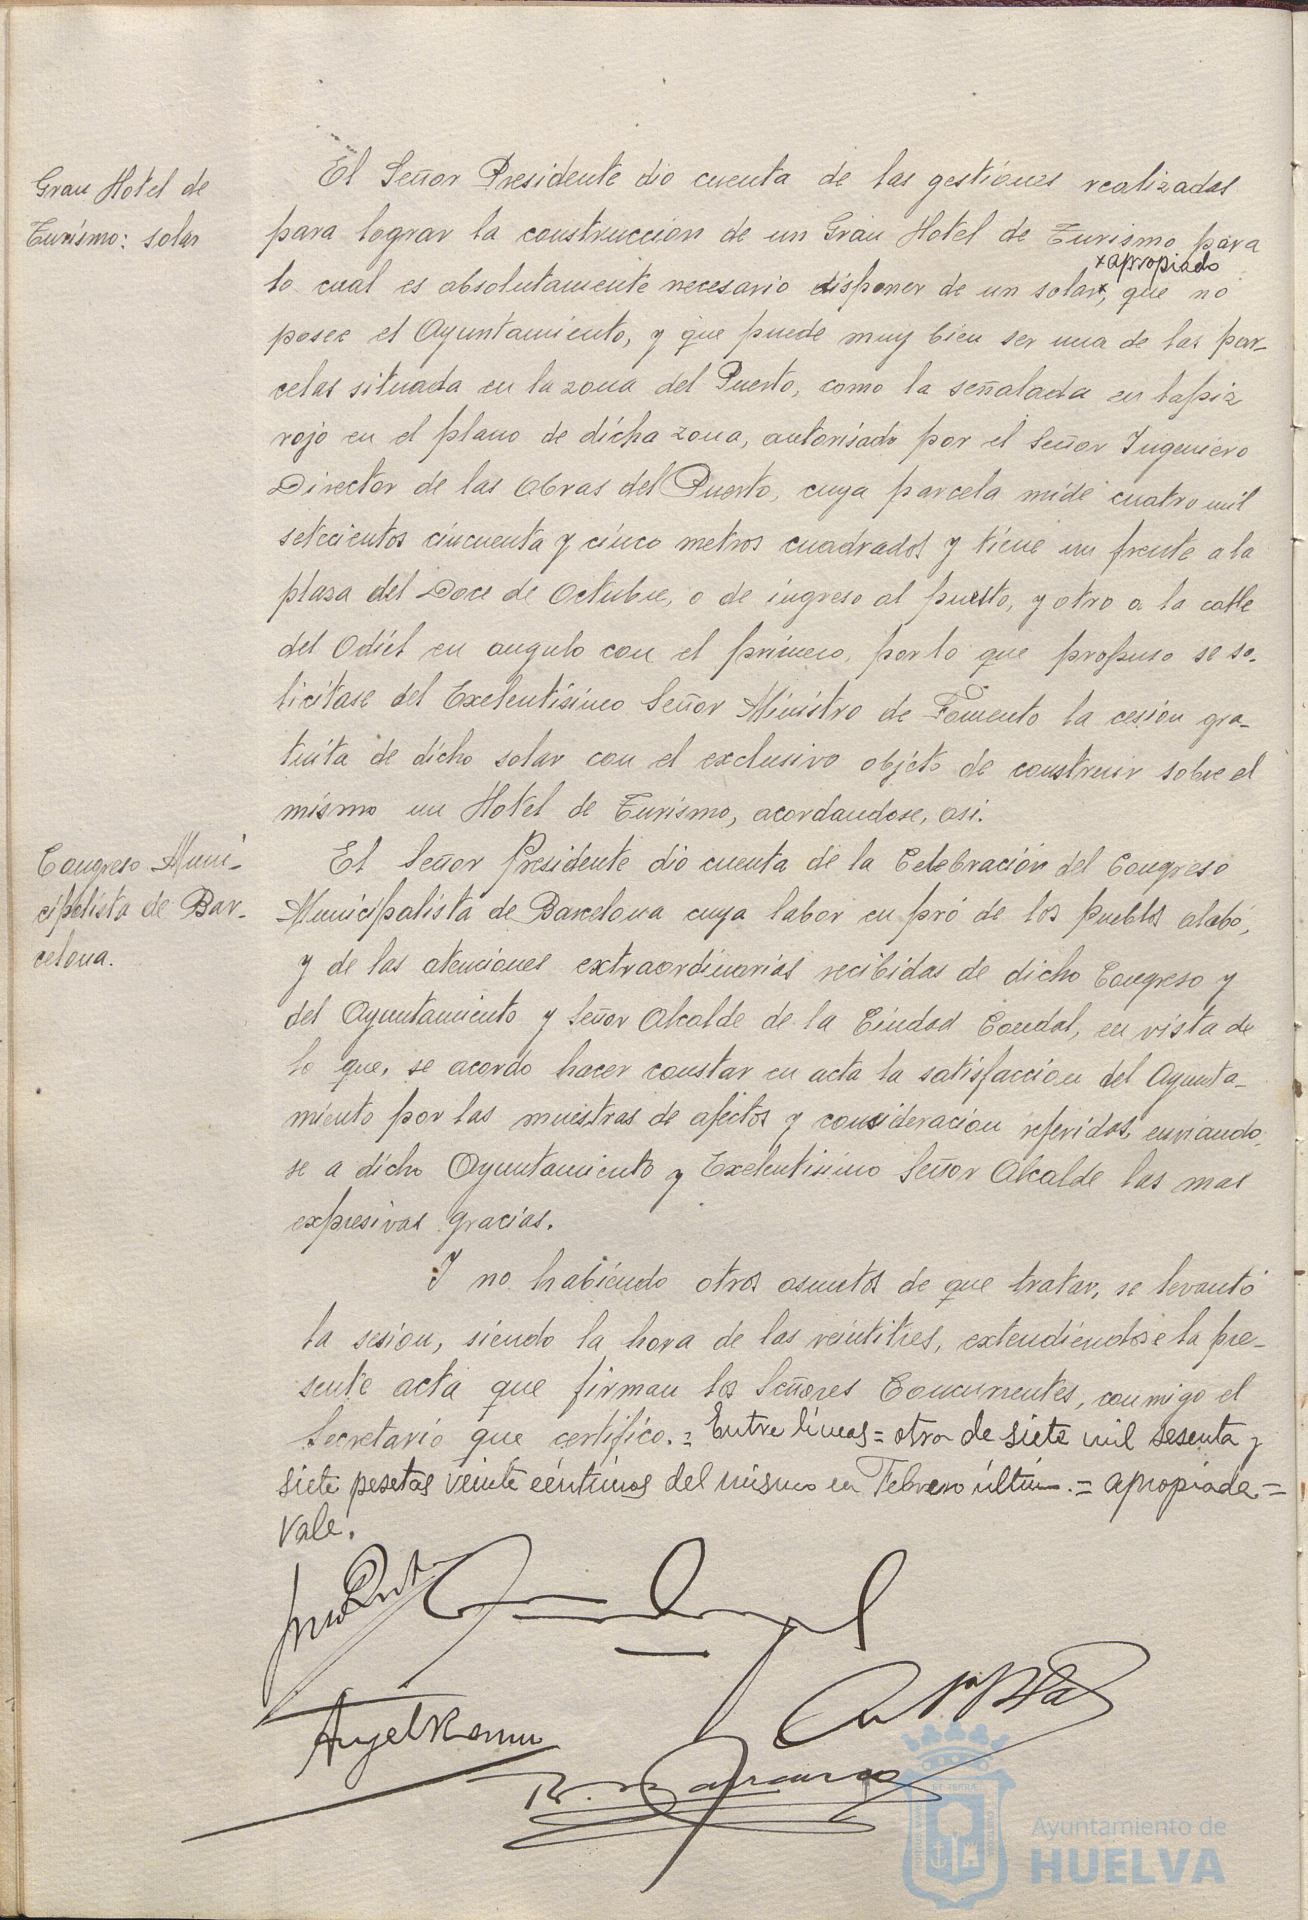 Gran Hotel de
Turismo: solar
El Señor Presidente dio cuenta de las gestiones realizadas
para lograr la construccion de un Gran Hotel de Turismo para
x apropiado
lo cual es absolutamente necesario disponer de un solar x, que no
posee el Ayuntamiento, y que puede muy bien ser una de las par-
celas situada en la zona del Puerto, como la señalada en lapiz
rojo en el plano de dicha zona, autorisado por el Señor Ingeniero
Director de las Obras del Puerto, cuya parcela mide cuatro mil
setecientos cincuenta y cinco metros cuadrados y tiene un frente a la
plasa del Doce de Octubre, o de ingreso al puerto, y otro a la calle
del Odiel en angulo con el primero, por lo que propuso se so-
licitase del Exelentisimo Señor Ministro de Fomento la cesion gra-
tuita de dicho solar con el exclusivo objeto de construir sobre el
mismo un Hotel de Turismo, acordandose, asi.
Congreso Muni-
cipalista de Bar-
celona.
El Señor Presidente dio cuenta de la Celebración del Congreso
Municipalista de Barcelona cuya labor en pró de los pueblos alabó,
y de las atenciones extraordinarias recibidas de dicho Congreso y
del Ayuntamiento y Señor Alcalde de la Ciudad Condal, en vista de
lo que, se acordo hacer constar en acta la satisfaccion del Ayunta-
miento por las muestras de afectos y consideracion referidas, enviando
se a dicho Ayuntamiento y Exelentisimo Señor Alcalde las mas
expresivas gracias.
I no habiendo otros asuntos de que tratar, se levantó
la sesion, siendo la hora de las veintitres, extendiendose la pre-
sente acta que firman los Señores Concurrentes, conmigo el
Secretario que certifico. = Entre lineas = otra de siete mil sesenta y
siete pesetas veinte céntimos del mismo en Febrero último. = apropiado =
Vale.
Ayuntamiento de
HUELVA